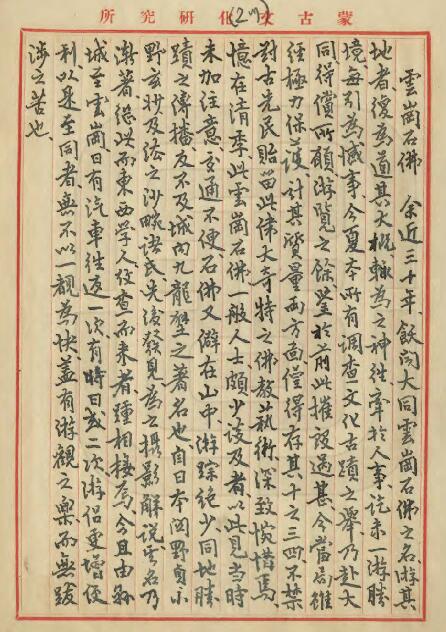 蒙古文化研究所
雲崗石佛　余近三十年飫聞大同雲崗石佛之名游其
地者復為道其大概輒為之神往牽於人事迄未一游勝
境每引為憾事今夏本所有調查文化古蹟之舉乃赴大
同得償所願游覽之餘鑒於前此摧毀過甚今當局雖
經極力保護計其質量兩方面僅得存其十之三四不禁
對古先民貽留此偉大奇特之佛教藝術深致惋惜焉
憶在清季此雲崗石佛一般人士頗少談及者以此見當時
未加注意交通不便石佛又僻在山中游踪絶少同地勝
蹟之傳播反不及城内九龍壁之著名也自日本岡野貞小
野玄妙及法之沙畹諸氏先後發見為之攝影解說雲名乃
漸著從此而東西學人攷查而來者踵相接焉今且由
城至雲崗日有汽車往返一次有時日或二次游侣更增便
利以是至同者無不以一覩為快蓋有游觀之樂而無跋
涉之苦也